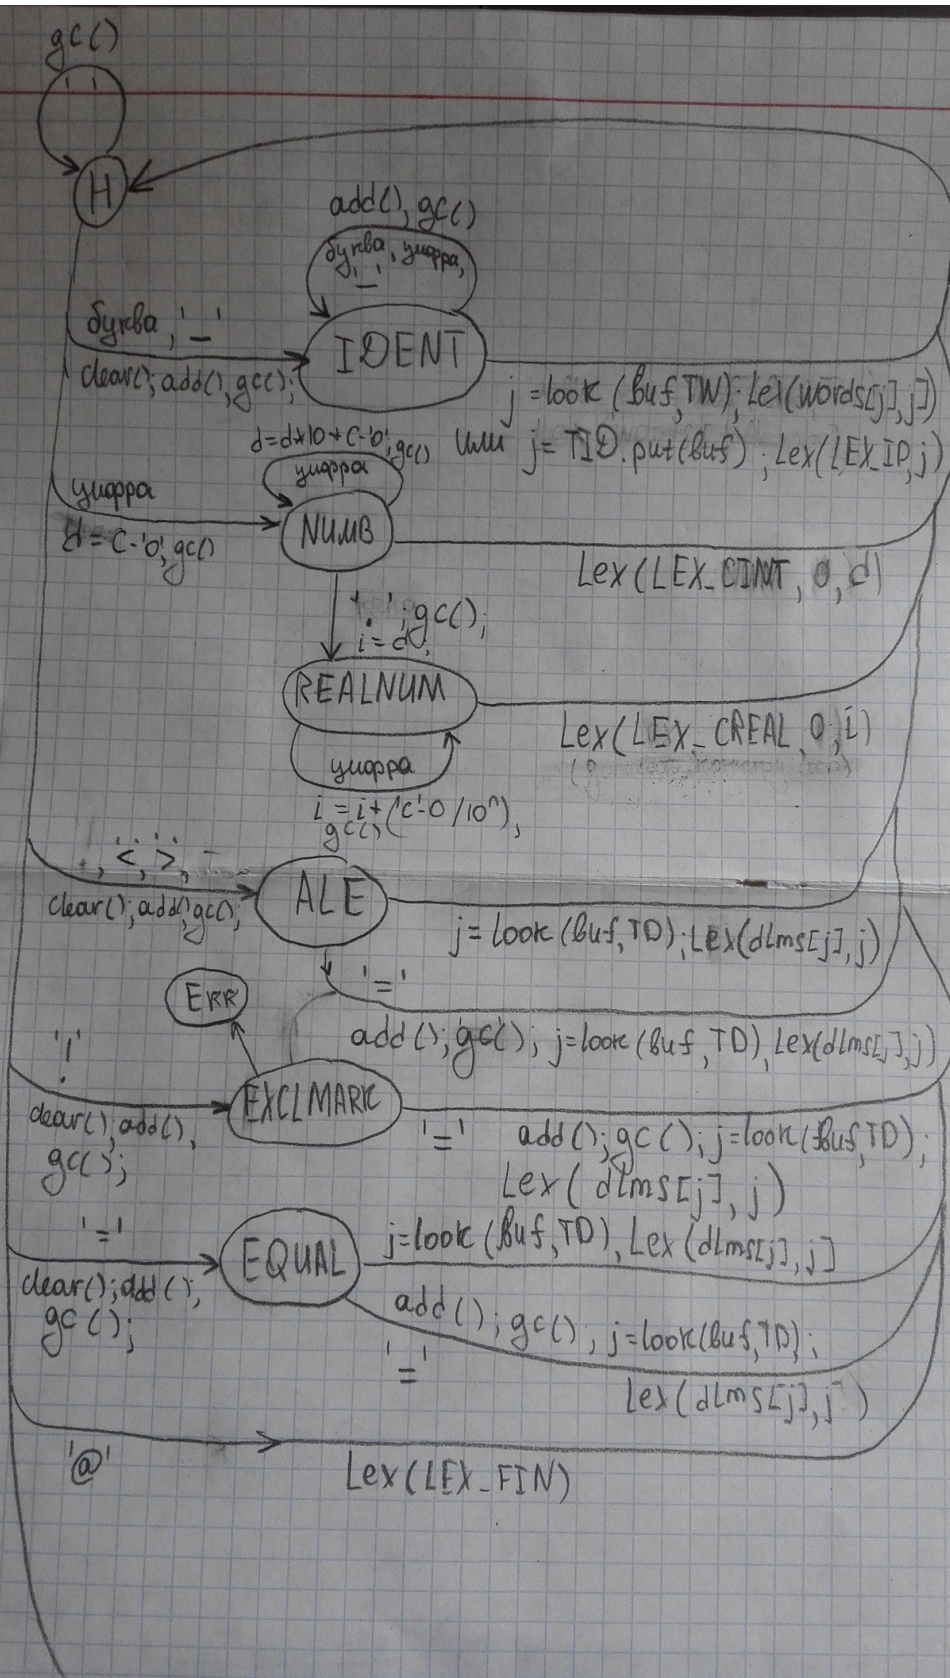 gc()
' '
H
add(), gc()
буква, цифра,
'_'
буква, '_'
IDENT
clear(); add(), gc();
j=look(buf,TW); Lex(words[j],j)
или j=TID.put(buf); Lex(LEX_ID,j)
d=d*10+c-'0'; gc()
цифра
цифра
NUMB
d=c-'0', gc()
Lex(LEX_CINT, 0, d)
'.'; gc();
i=d;
REALNUM
Lex(LEX_CREAL, 0, i)
цифра
i=i+(c'-0/10^),
gc()
'<', '>',
ALE
clear(); add(), gc();
j=look(buf,TD); Lex(dlms[j],j)
'='
ERR
add(); gc(); j=look(buf,TD), Lex(dlms[j],j)
'!'
EXCLMARK
clear(); add(),
gc();
'=' add(); gc(); j=look(buf,TD);
Lex(dlms[j], j)
'='
EQUAL
j=look(buf,TD), Lex(dlms[j], j]
clear(); add(),
gc();
add(); gc(), j=look(buf,TD);
'='
Lex(dlms[j],j)
'@'
Lex(LEX_FIN)